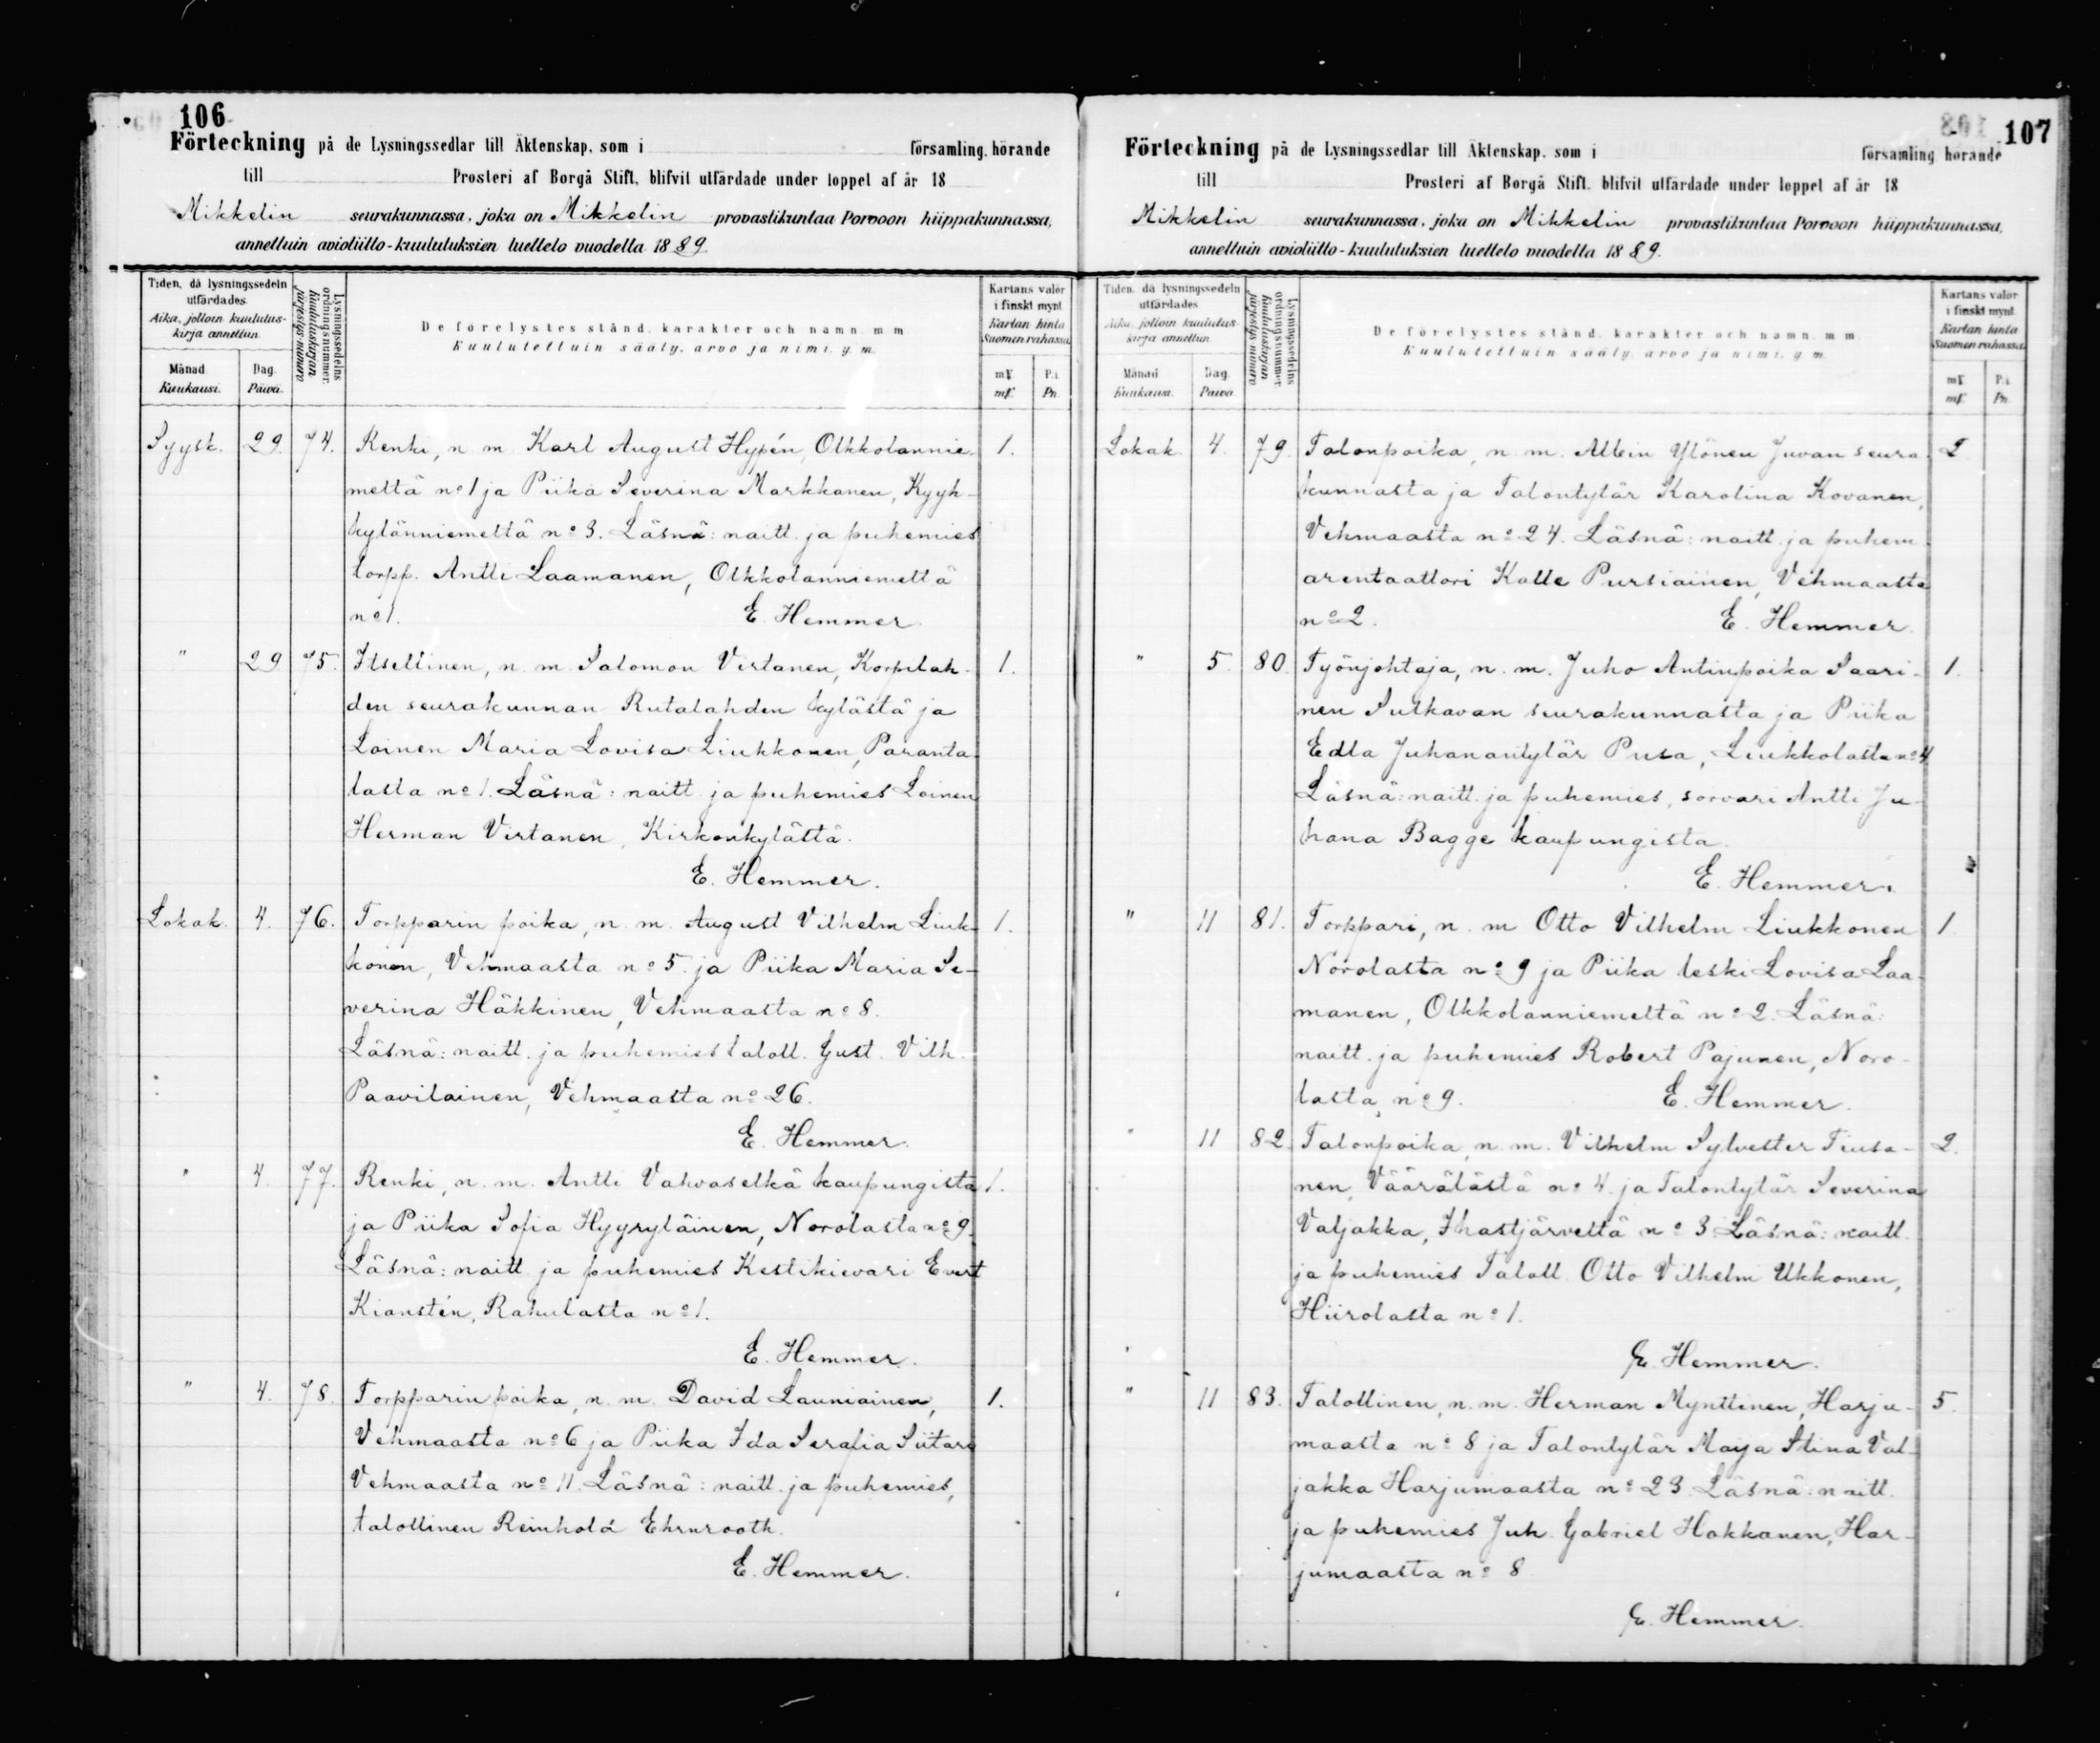 106
Förteckning på de Lysningssedlar till Äktenskap, som i församling hörande
till Prosteri af Borgå Stift, blifvit utfärdade under loppet af år 18
Mikkelin seurakunnassa, joka on Mikkelin provastikuntaa Porvoon hiippakunnassa,
annettuin avioliitto-kuulutuksien luettelo vuodella 1889.
Tiden, då lysningssedeln utfärdades.
Aika, jolloin kuulutuskirja annettiin.
Månad. Kuukausi.
Dag. Päivä.
Lysningssedelns ordningsnummer.
Kuulutuskirjan järjestys-numero
De förelystes stånd, karakter och namn m. m.
Kuulutettuin sääty, arvo ja nimi, y. m.
Kartans valör i finskt mynt.
Kartan hinta Suomen rahassa.
mk. P:i.
mk. Pn.
Syysk. 29. 74. Renki, n. m. Karl August Hypén, Olkkolannie- 1.
meltä no 1 ja Piika Severina Markkanen, Kyyh-
kylänniemeltä no 3. Läsnä: naitt. ja puhemies
torpp. Antti Laamanen, Olkkolanniemeltä
no 1. E. Hemmer
" 29 75. Itsellinen, n. m. Salomon Virtanen, Korpilah- 1.
den seurakunnan Rutalahden kylästä ja
Loinen Maria Lovisa Liukkonen, Paranta-
lasta no 1. Läsnä: naitt. ja puhemies Loinen
Herman Virtanen, Kirkonkylästä.
E. Hemmer.
Lokak. 4. 76. Torpparin poika, n. m. August Vilhelm Liuk- 1.
konen, Vehmaasta no 5. ja Piika Maria Se-
verina Häkkinen, Vehmaasta no 8.
Läsnä: naitt. ja puhemies taloll. Gust. Vilh.
Paavilainen, Vehmaasta no 26.
E. Hemmer.
" 4. 77. Renki, n. m. Antti Vahvaselkä kaupungista 1.
ja Piika Sofia Hyyryläinen, Norolasta no 9.
Läsnä: naitt. ja puhemies Kestikievari Evert
Kianstén, Rahulasta no 1.
E. Hemmer.
" 4. 78. Torpparin poika, n. m. David Launiainen, 1.
Vehmaasta no 6 ja Piika Ida Serafia Siitari
Vehmaasta no 11. Läsnä: naitt. ja puhemies,
talollinen Reinhold Ehrnrooth.
E. Hemmer.
107
Förteckning på de Lysningssedlar till Äktenskap, som i församling hörande
till Prosteri af Borgå Stift, blifvit utfärdade under loppet af år 18
Mikkelin seurakunnassa, joka on Mikkelin provastikuntaa Porvoon hiippakunnassa,
annettuin avioliitto-kuulutuksien luettelo vuodella 1889.
Tiden, då lysningssedeln utfärdades.
Aika, jolloin kuulutuskirja annettiin.
Månad. Kuukausi.
Dag. Päivä.
Lysningssedelns ordningsnummer.
Kuulutuskirjan järjestys-numero
De förelystes stånd, karakter och namn m. m.
Kuulutettuin sääty, arvo ja nimi, y. m.
Kartans valör i finskt mynt.
Kartan hinta Suomen rahassa.
mk. P:i.
mk. Pn.
Lokak. 4. 79. Talonpoika, n. m. Albin Ylönen Juvan seura- 2
kunnasta ja Talontytär Karolina Kovanen,
Vehmaasta no 24. Läsnä: naitt. ja puhem.
arentaattori Kalle Pursiainen, Vehmaasta
no 2. E. Hemmer.
" 5. 80. Työnjohtaja, n. m. Juho Antinpoika Saari- 1.
nen Sulkavan seurakunnasta ja Piika
Edla Juhanantytär Pusa, Liukkolasta no 4
Läsnä: naitt. ja puhemies, sorvari Antti Ju-
hana Bagge kaupungista.
E. Hemmer.
" 11 81. Torppari, n. m. Otto Vilhelm Liukkonen 1
Norolasta no 9 ja Piika leski Lovisa Laa-
manen, Olkkolanniemeltä no 2. Läsnä:
naitt. ja puhemies Robert Pajunen, Noro-
lasta, no 9. E. Hemmer.
" 11 82. Talonpoika, n. m. Vilhelm Sylvester Tiusa- 2.
nen, Väärälästä no 4. ja Talontytär Severina
Valjakka, Ihastjärveltä no 3. Läsnä: naitt.
ja puhemies Taloll. Otto Vilhelm Ukkonen,
Hiirolasta no 1.
E. Hemmer.
" 11 83. Talollinen, n. m. Herman Mynttinen, Harju- 5.
maasta no 8 ja Talontytär Maija Stina Val-
jakka Harjumaasta no 23. Läsnä: naitt.
ja puhemies Juh. Gabriel Hokkanen, Har-
jumaasta no 8
E. Hemmer.